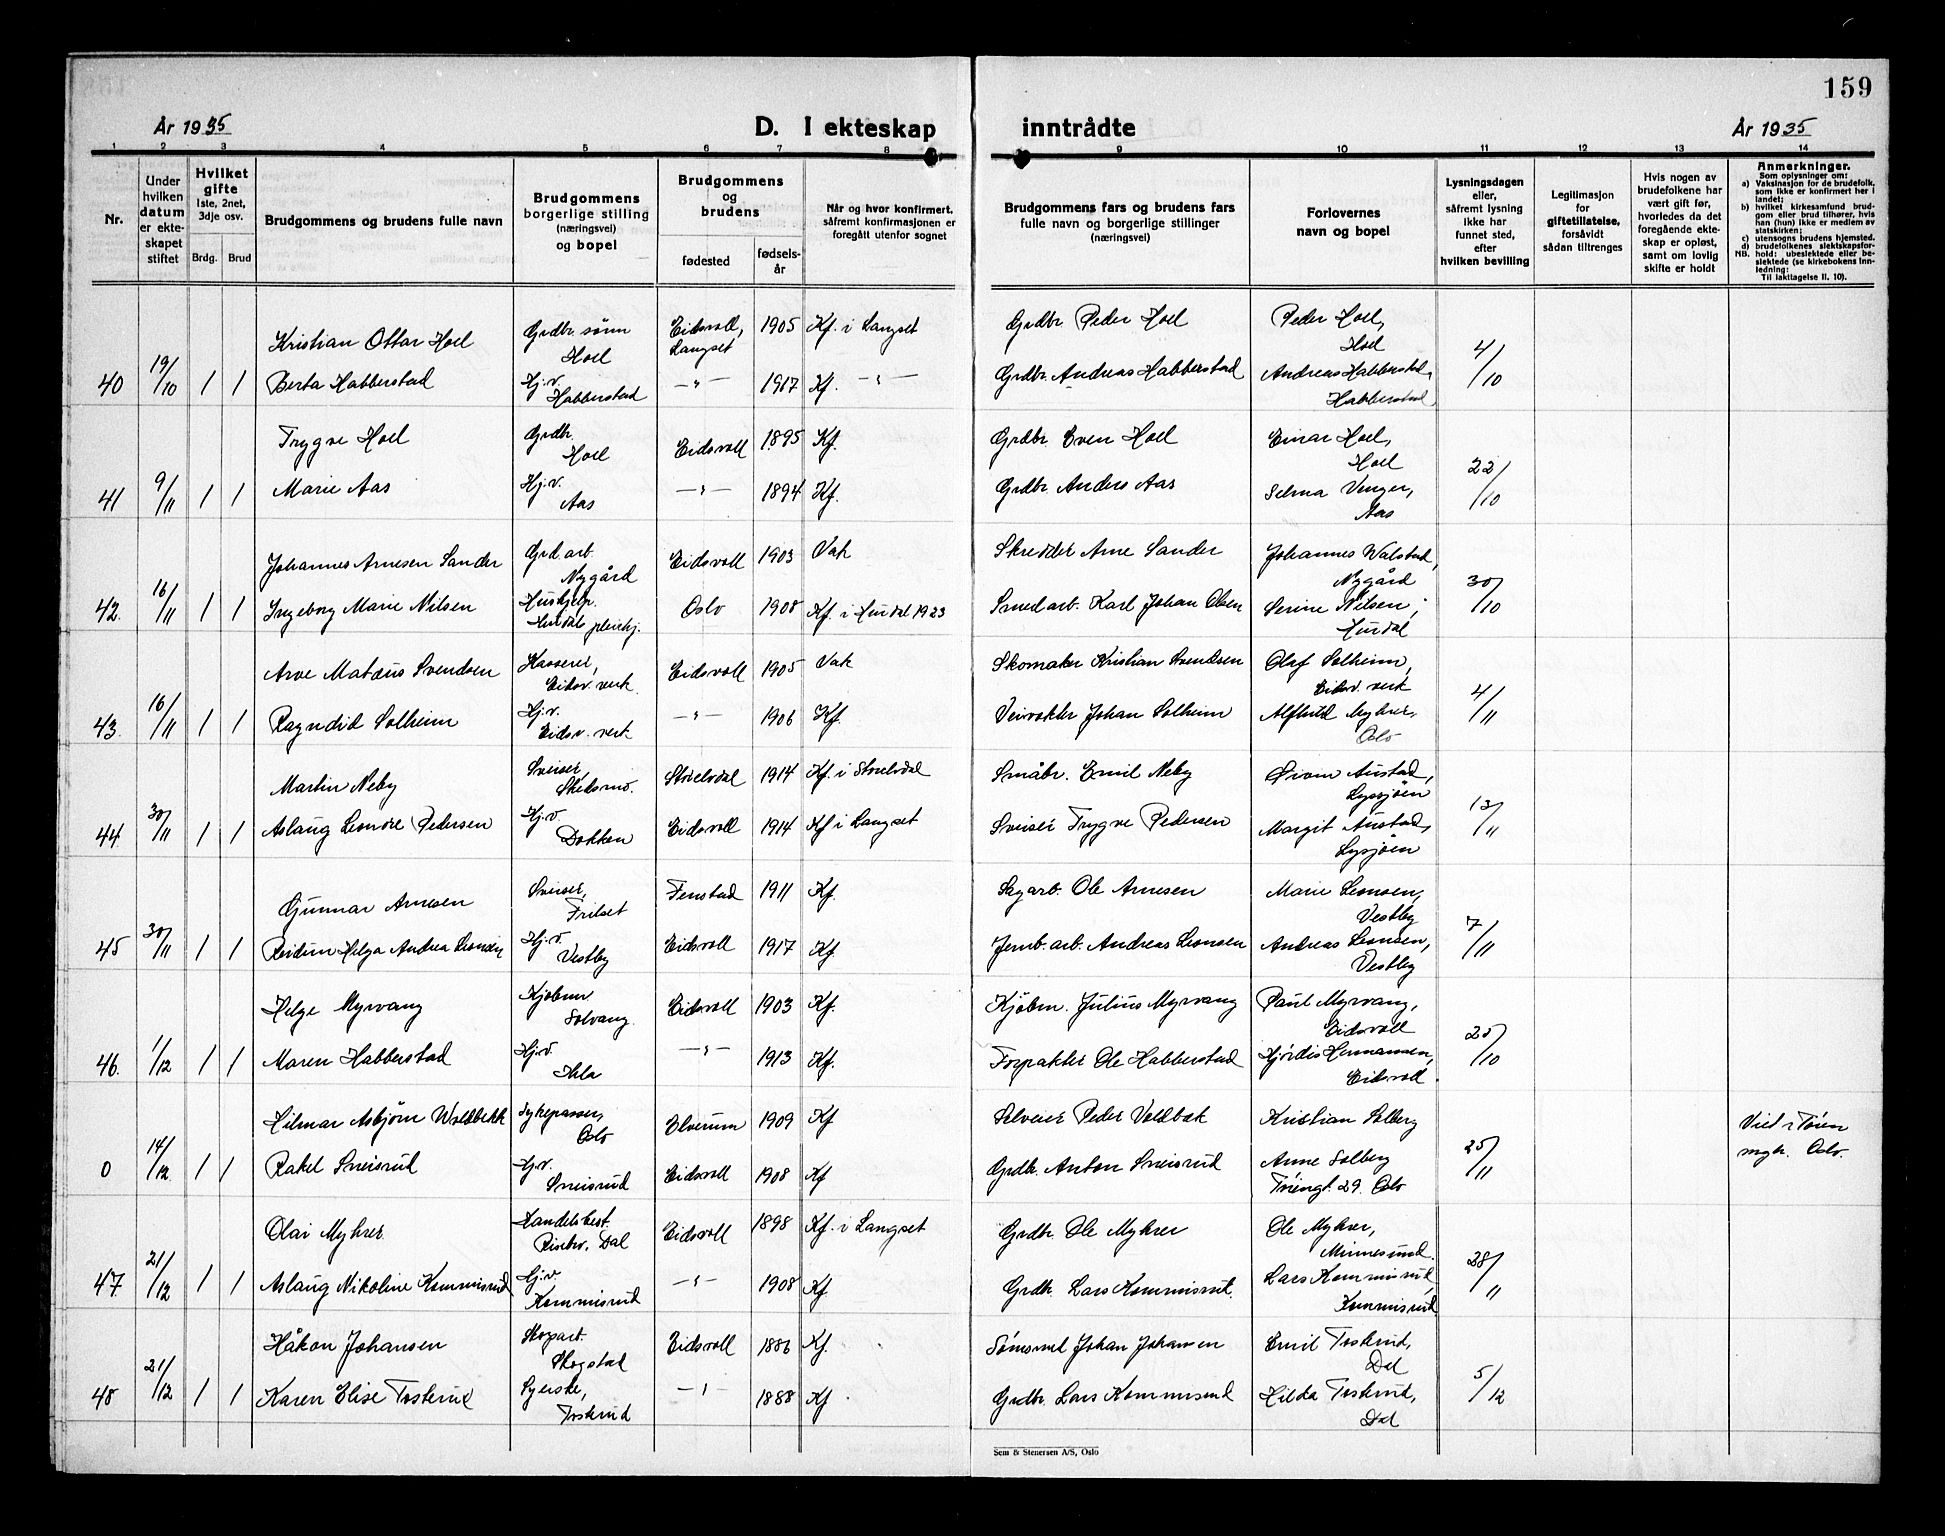 159
År 1935
D. I ekteskap inntrådte
År 1935
1 2 3 4 5 6 7 8 9 10 11 12 13 14
Nr.
Under hvilken datum er ekteskapet stiftet
Hvilket gifte
1ste, 2net, 3dje osv.
Brdg. Brud
Brudgommens og brudens fulle navn
Brudgommens borgerlige stilling (næringsvei) og bopel
Brudgommens og brudens
fødested
fødselsår
Når og hvor konfirmert, såfremt konfirmasjonen er foregått utenfor sognet
Brudgommens fars og brudens fars fulle navn og borgerlige stillinger (næringsvei)
Forlovernes navn og bopel
Lysningsdagen eller, såfremt lysning ikke har funnet sted, efter hvilken bevilling
Legitimasjon for giftetillatelse, forsåvidt sådan tiltrenges
Hvis nogen av brudefolkene har vært gift før, hvorledes da det foregående ekteskap er opløst, samt om lovlig skifte er holdt
Anmerkninger.
Som oplysninger om:
a) Vaksinasjon for de brudefolk. som ikke er konfirmert her i landet;
b) hvilket kirkesamfund brudgom eller brud tilhører, hvis han (hun) ikke er medlem av statskirken;
c) utensogns brudens hjemsted.
d) brudefolkenes slektskapsforhold: ubeslektede eller beslektede (se kirkebokens innledning:
NB. Til iakttagelse II. 10).
Kristian Ottar Hoel Grdbr. sønn Hoel Eidsvoll, Langset 1905 Kf. i Langset Grdbr Peder Hoel Peder Hoel, Hoel
40 19/10 1 1 Berta Habberstad Hj.v. Habberstad —"— 1917 Kf. —"— Grdbr. Andreas Habberstad Andreas Habberstad, Habberstad 4/10
Trygve Hoel Grdbr. Hoel Eidsvoll 1895 Kf. Grdbr Even Hoel Einar Hoel, Hoel
41 9/11 1 1 Marie Aas Hj.v. Aas —"— 1894 Kf. Grdbr. Anders Aas Selma Venger, Aas 22/10
Johannes Arnesen Sander Grd arb. Nygård Eidsvoll 1903 Vak Skredder Arne Sander Johannes Walstad, Nygård
42. 16/11 1 1 Ingeborg Marie Nilsen Hushjelp. Hurdals pleiehj. Oslo 1908 Kf. i Hurdal 1923 Smedarb. Karl Johan Olsen Serine Nilsen, Hurdal 30/10
Arve Matæus Svendsen Kasserer, Eidsv. verk Eidsvoll 1905 Vak Skomaker Kristian Svendsen Olaf Solheim, Eidsv. verk
43. 16/11 1 1 Ragndid Solheim Hj.v. Eidsv. verk —"— 1906 Kf. Veivokter Johan Solheim Alfhild Myhrer, Oslo 4/11
Martin Neby Sveiser, Skedsmo. Storelvdal 1914 Kf. i Storelvdal Småbr. Emil Neby Øivin Austad, Lyssjøen
44 30/11 1 1 Aslaug Leonore Pedersen Hj.v. Dokken Eidsvoll 1914 Kf i Langset Sveiser Trygve Pedersen Margit Austad, Lysjøen 13/11
Gunnar Arnesen Sveiser, Frilset Fenstad 1911 Kf. Sagarb. Ole Arnesen Marie Leonsen, Vestby
45 30/11 1 1 Reidun Helga Andrea Leonsen Hj.v. Vestby Eidsvoll 1917 Kf. Jernb. arb. Andreas Leonsen Andreas Leonsen, Vestby 7/11
Helge Myrvang Kjøbmn Solvang. Eidsvoll 1903 Kf. Kjøbm. Julius Myrvang Paul Myrvang, Eidsvoll
46. 1/12 1 1 Maren Habberstad Hj.v. —"— 1913 Kf. Forpakter Ole Habberstad Hjørdis Hermansen, Eidsvoll. 25/10
Hilmar Asbjørn Woldbekk Sykepasser, Oslo Elverum 1909 Kf Peder Voldbæk Kristian Solberg Viet i Tøien mgk. Oslo.
0 14/12 1 1 Rakel Sneisrud Hj.v. Sneisrud Eidsvoll 1908 Kf Grdbr. Anton Sneisrud Anne Solberg Tøiengt. 29. Oslo 25/11
Olai Myhrer Handelsbest. Risebro, Dal Eidsvoll 1898 Kf. i Langset Grdbr. Ole Myhrer Ole Myhrer, Minnesund.
47 21/12 1 1 Aslaug Nikoline Kommisrud Hj.v. Kommisrud —"— 1908 Kf. Grdbr. Lars Kommisrud. Lars Kommisrud, Kommisrud 28/11
Håkon Johansen Skogarb. Skogstad Eidsvoll 1886 Kf. Johan Johansen Emil Tosterud, Dal
48 21/12 1 1 Karen Elise Tosterud Syerske, Tosterud —"— 1888 Kf. Grdbr. Lars Kommisrud Hilda Tosterud, Dal 5/12
Sem & Stenersen A/S, Oslo